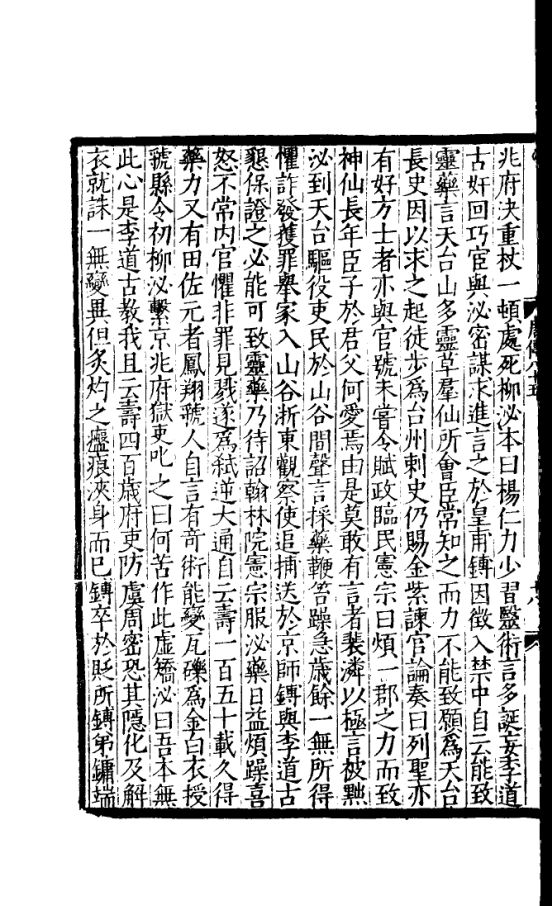 兆府決重杖一頓處死柳泌本曰楊仁力少習醫術言多誕妄李道
古奸回巧宦與泌密謀求進言之於皇甫鎛因徵入禁中自云能致
靈藥言天台山多靈草羣仙所會臣常知之而力不能致願爲天台
長史因以求之起徒步爲台州刺史仍賜金紫諫官論奏曰列聖亦
有好方士者亦與官號未嘗令賦政臨民憲宗曰煩一郡之力而致
神仙長年臣子於君父何愛焉由是莫敢有言者裴潾以極言被黜
泌到天台驅役吏民於山谷間聲言採藥鞭笞躁急歲餘一無所得
懼詐發獲罪舉家入山谷浙東觀察使追捕送於京師鎛與李道古
懇保證之必能可致靈藥乃待詔翰林院憲宗服泌藥日益煩躁喜
怒不常内官懼非罪見戮遂爲弑逆大通自云壽一百五十載久得
藥力又有田佐元者鳳翔虢人自言有奇術能變瓦礫爲金白衣授
虢縣令初柳泌繫京兆府獄吏叱之曰何苦作此虚矯泌曰吾本無
此心是李道古教我且云壽四百歲府吏防虞周密恐其隱化及解
衣就誅一無變異但灸灼之瘢痕浹身而已鎛卒於貶所鎛弟鏞端